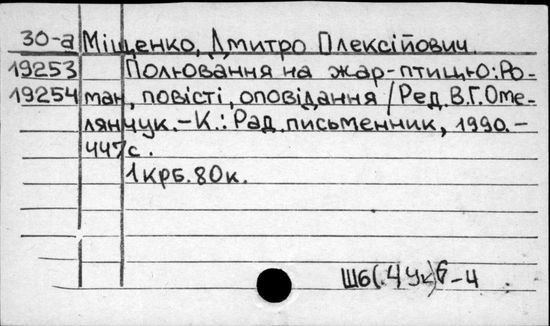 30-а Міщенко, Дмитро Олексійович.
19253 Полювання на жар-птицю: Ро-
19254 ман, повісті, оповідання / Ред. В.Г. Оме-
лянчук. - К.: Рад. письменник, 1990. -
447 с.
1 крб. 80 к.
Ш6(.4Ук)6-4